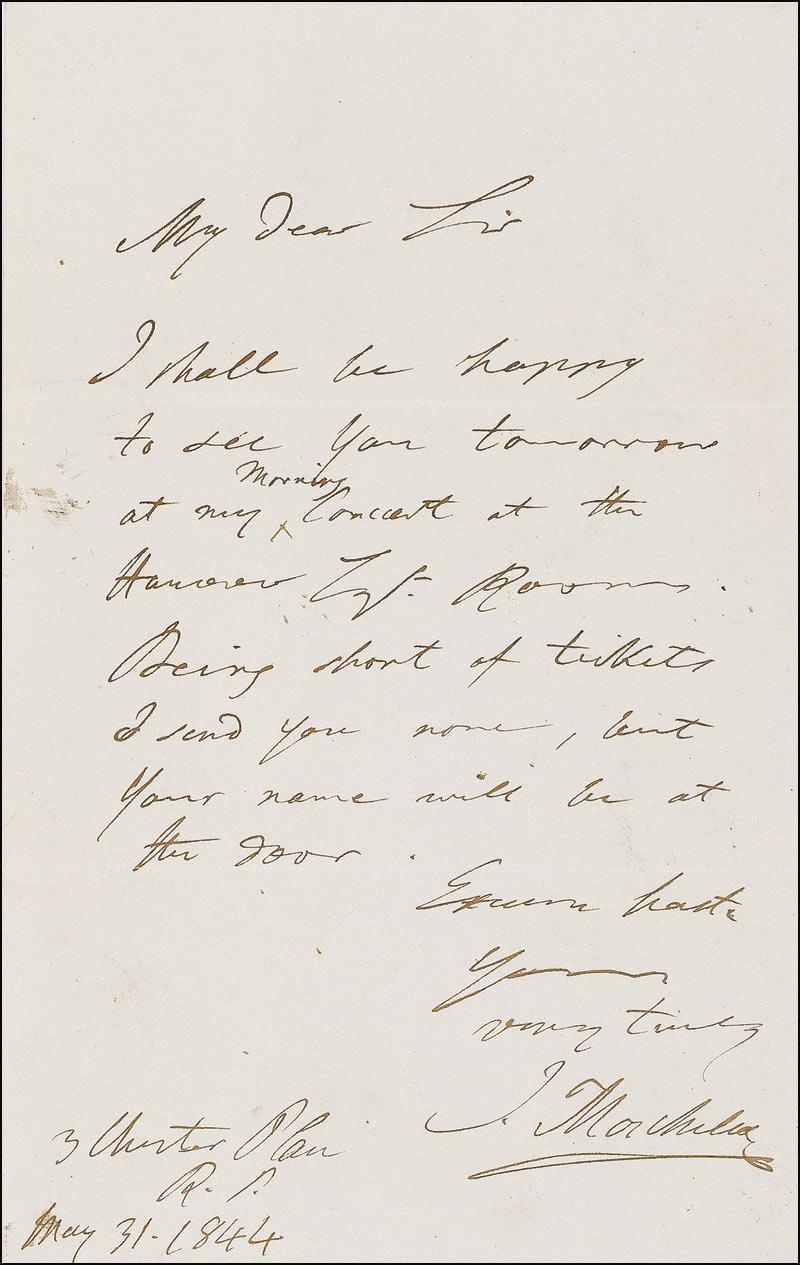 My Dear Sir
I shall be happy
to see you tomorrow
Morning
at my Concert at the
Hanover Sqr. Rooms.
Being short of tickets
I send you none, but
Your name will be at
the door.
Excuse haste
Yours
very truly
I. Moscheles
3 Chester Place
R. P.
May 31. 1844